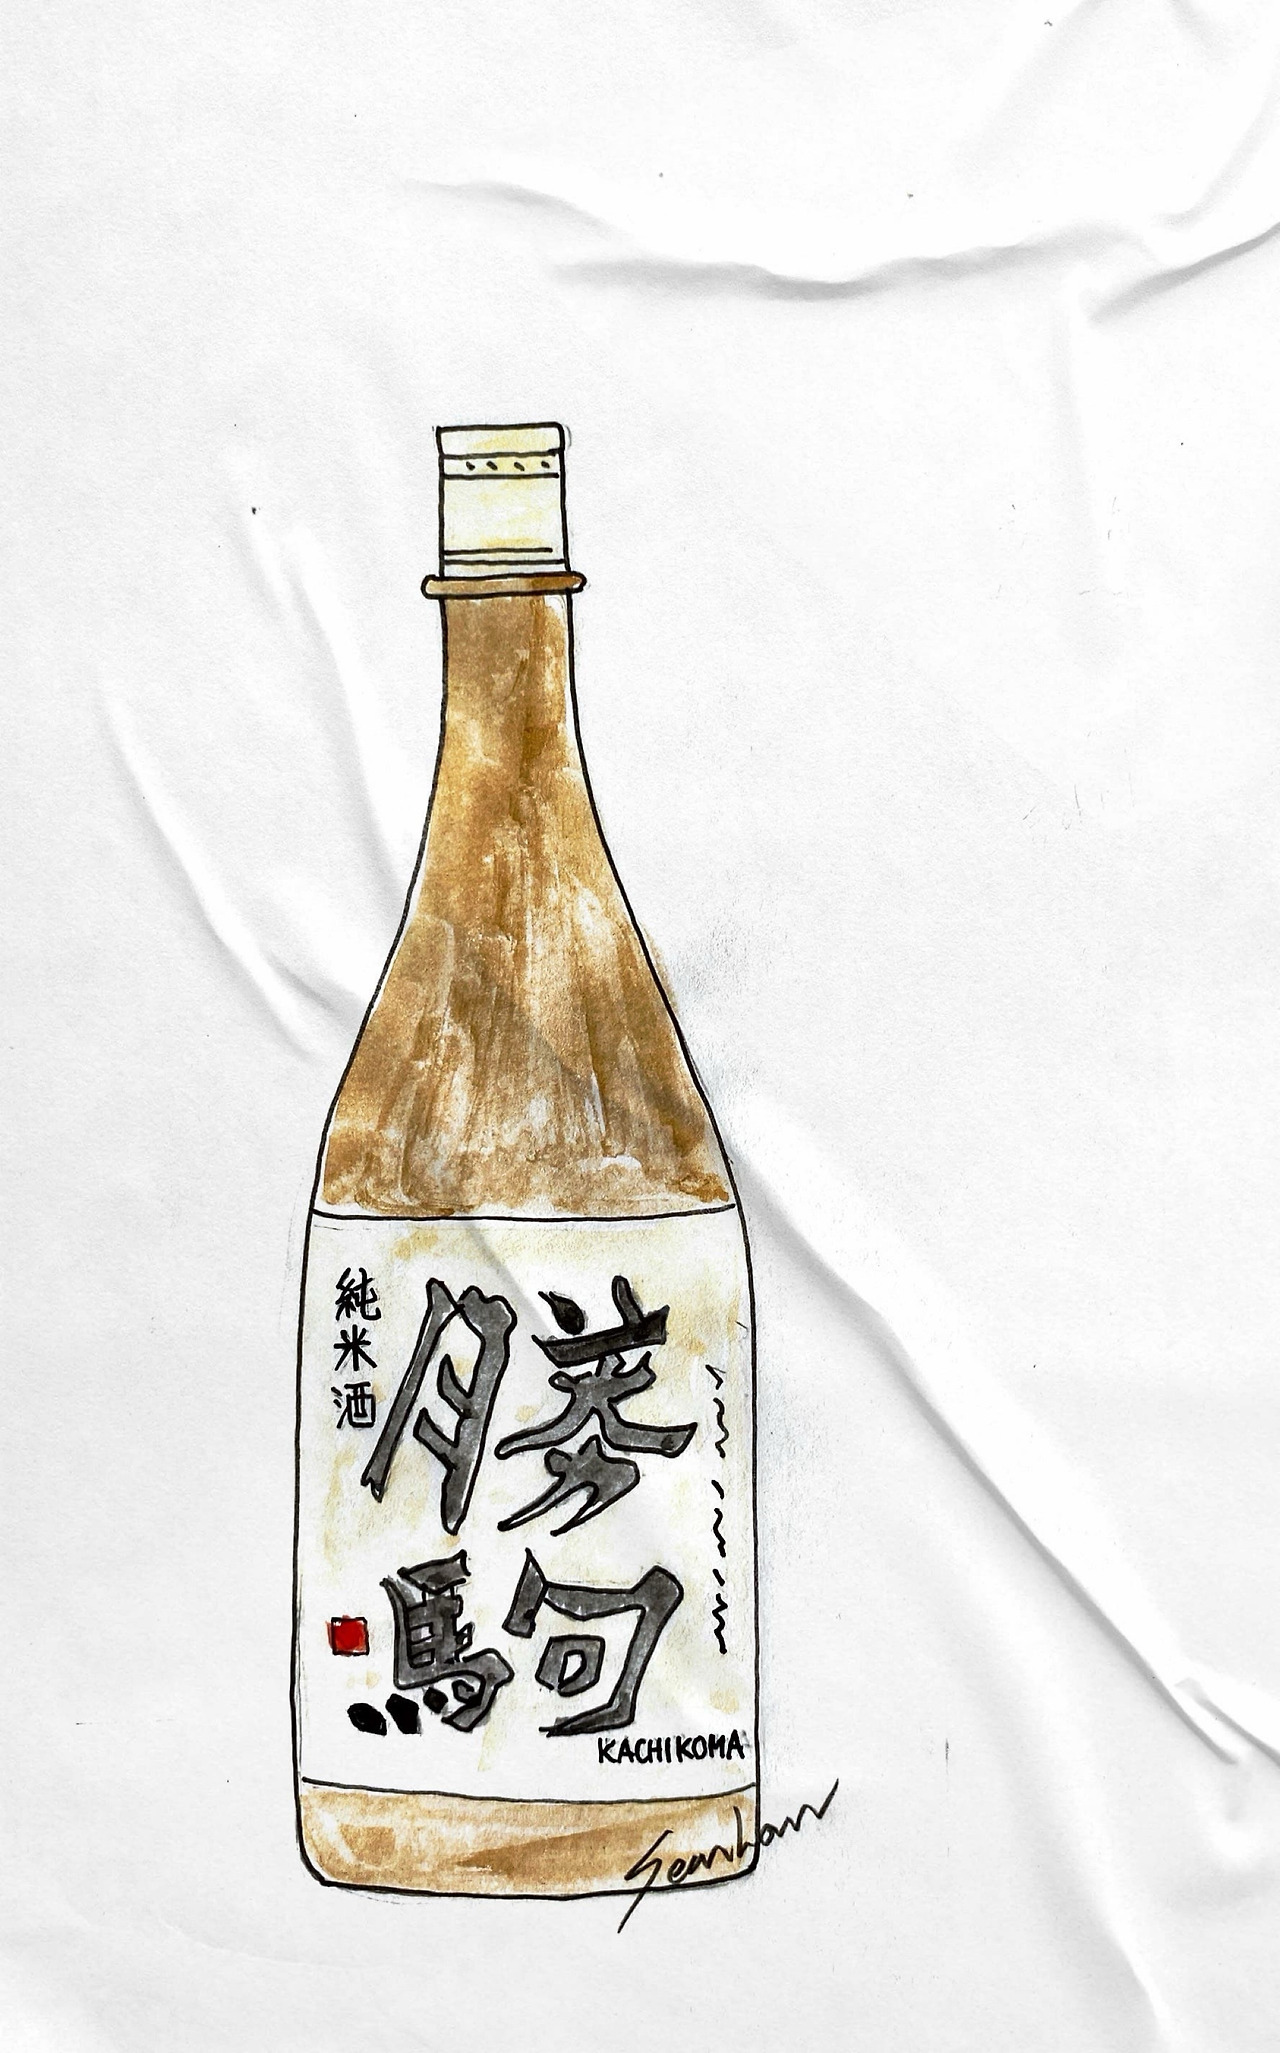 純米酒
勝駒
KACHIKOMA